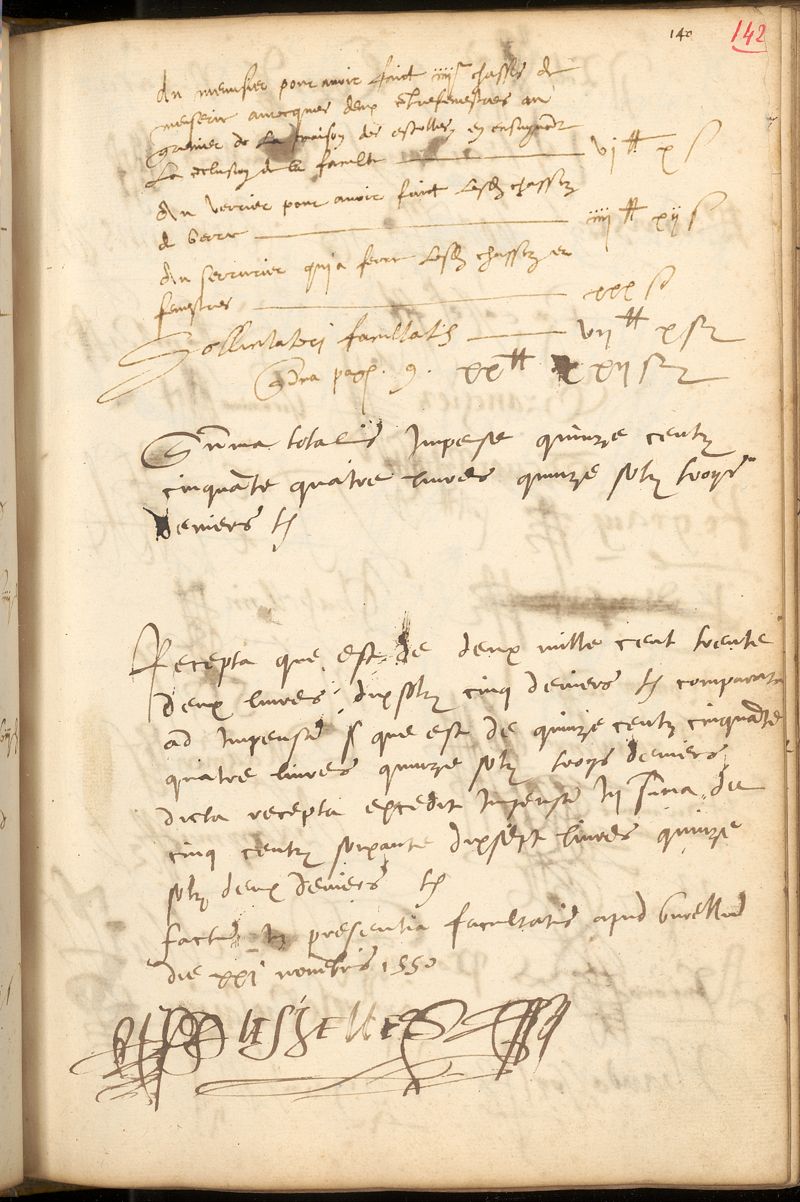 140 142
Au menusier pour avoir faict iiiior chassis de
menserie avecques deux contrefenestres au
grenier de la maison des escolles en ensuyvant
la oclusion de la faculte vi lt x s
Au verrier pour avoir faict lesd chassiz
de verre iiii lt xii s
Au serrurier qui a ferre lesd chassiz et
fenestres xxx s
Sollicitatori facultatis vii lt x s t
Sma pag. 9. xx lt xii s t
Suma totalis Impense quinze centz
cinquate quatre livres quinze solz troys
deniers t
Recepta que est de deux mille cent trente
deux livres dix solz cinq deniers t comparata
ad Impensa que est de quinze centz cinquate
quatre livres quinze solz troys deniers
dicta recepta excedit Impensa In suma de
cinq centz soixante dixsept livres quinze
solz deux deniers t
factu In presentia facultatis apud burellum
die xxi novebris 1550